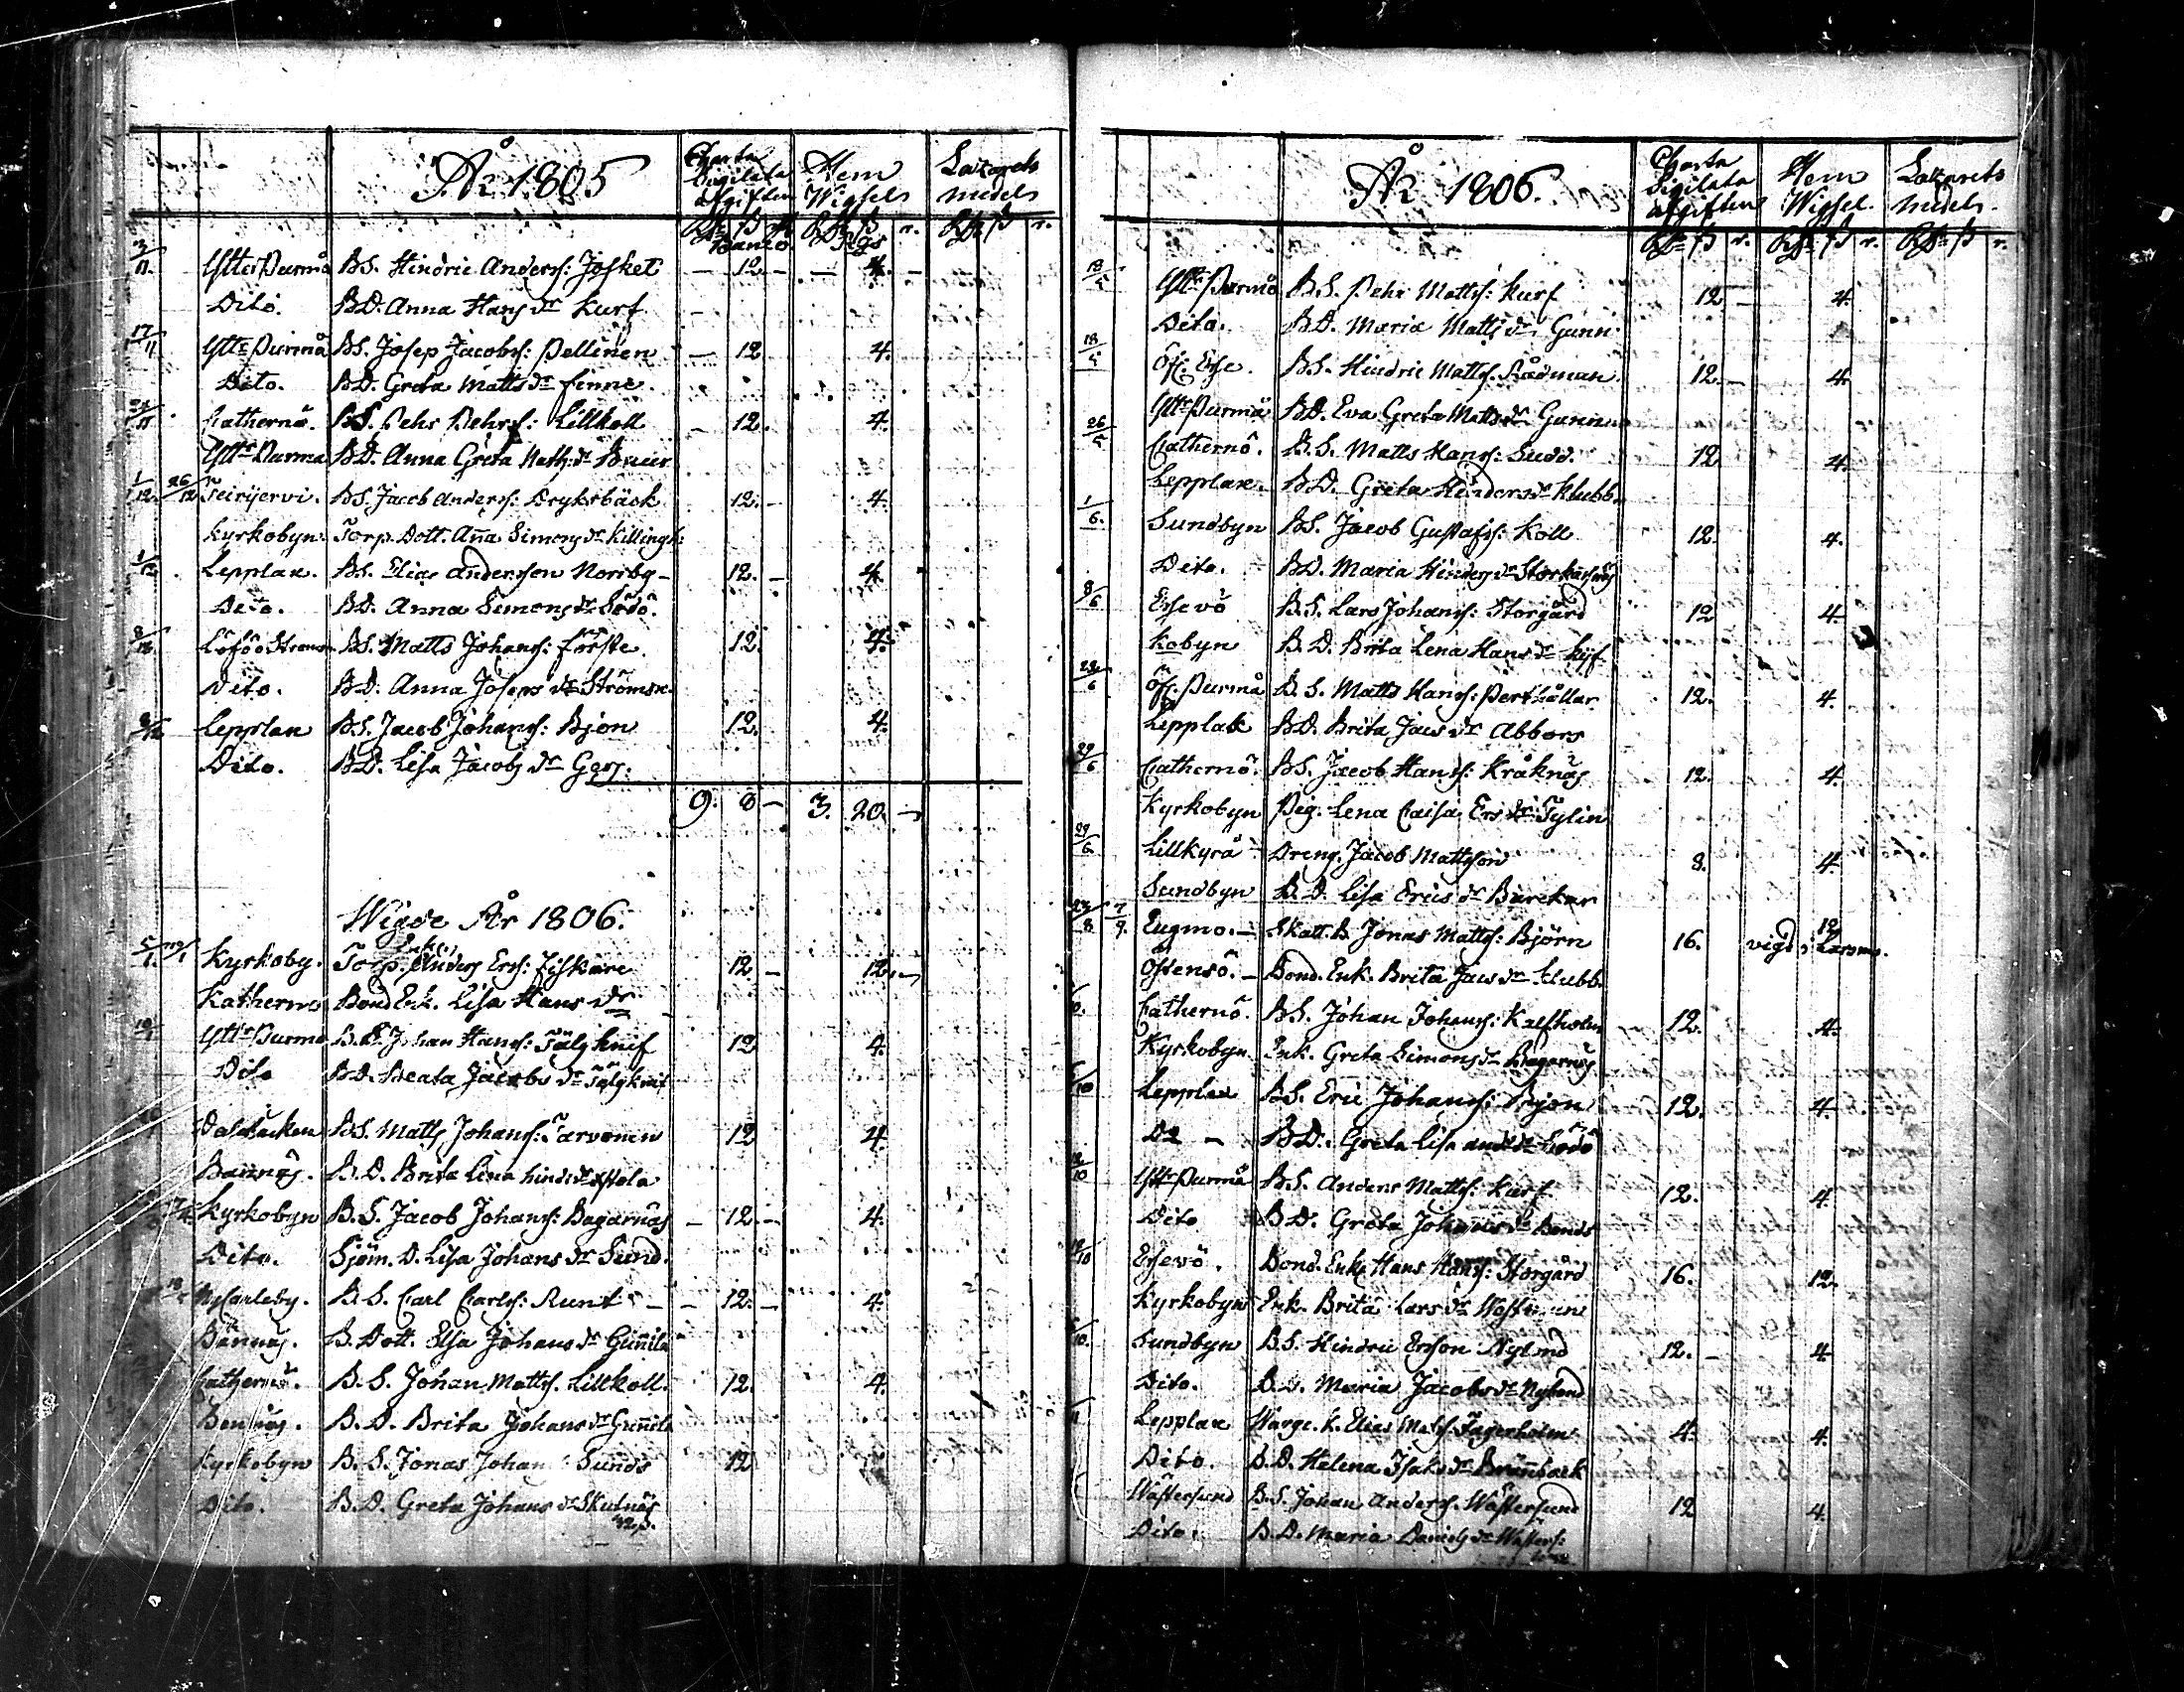 År 1805 Charta Sigilata afgiften Hem Wigsels Lazarets medels
Rd ß r. Banco Rd ß r. Rgs Rd ß r.
3/11. Ytter Purmå BS. Hindric Anderss: Josket — 12 — — 4. —
Dito. BD. Anna Hans dr Kurf
17/11 Yttr Purmå BS. Josep Jacobss: Pellinen — 12 4.
Dito. BD. Greta Matts dr Finne.
24/11 Cathernö. BS. Pehr Pehrss: Lillkoll — 12. 4.
Yttr Purmå BD. Anna Greta Matts: dr
1/12. 26/12 BS. Jacob Anderss: Dryksbäck 12. — 4.
Kyrkobyn. Torp. Dott. Aña Simons dr Killingh:
1/12 Lepplax. BS. Elias Andersson Norrby — 12. — 4.
Dito. BD. Anna Simons dr Sodö.
8/12. BS. Matts Johanss: Förste. 12. 4.
Dito. BD. Anna Joseps dr Strömsn.
8/12 Lepplax BS. Jacob Johanss: Bjon 12. 4.
Dito. BD. Lisa Jacobs dr Gers.
9. 8 — 3. 20. —
Wigde År 1806.
5/1. Kyrkoby. Torp. Enkl. Anders Erss: Fiskare 12 — 12. —
Katherno Bond Enk. Lisa Hans dr
Yttr Purmo B.S. Johan Hanss: Tälgknif 12 4.
Dito BD. Beata Jacobs dr Tälgknif
BS. Matts Johanss: Tarvonen 12 4.
Bennäs. B.D. Brita Lena
Kyrkobyn B.S. Jacob Johanss: Bagarnäs — 12. — 4.
Dito. Sjöm. D. Lisa Johans dr Sund.
Nycarleby. B.S. Carl Carlss: Runt — — 12. — 4.
Bännäs. B. Dott. Elsa Johans dr Guñila
Cathernö. B.S. Johan Mattss. Lillkoll. 12. 4.
Bennäs. B.D. Brita Johans dr Guñila
Kyrkobyn B.S. Jonas Johan : Sunds 12
Dito. B.D. Greta Johans dr Skutnäs
År 1806. Charta Sigilata afgiften Hem Wigsel. Lazarets medels.
Rdr ß r. Rdr ß r. Rdr ß r.
18/5 Yttr Purmo B.S. Pehr Mattss: Kurf 12 — 4.
Dito. BD. Maria Matts dr Gunn
18/5 Öf. Esse. BS. Hindric Mattss. Rådman 12. — 4.
Yttr Purmå BD. Eva Greta Matts dr
26/5 Cathernö. B.S. Matts Hanss: Sudd. 12 4.
Lepplax. BD. Greta Hinders dr Klubb.
1/6. Sundbyn BS. Jacob Gustafss: Koll 12. 4.
Dito. BD. Maria Hinders dr
8/6 Essevö B.S. Lars Johanss: Storgård 12 4.
Kobyn B.D. Brita Lena Hans dr
Öf. Purmå B.S. Matts Hanss: Perthållar 12. 4.
Lepplax BD. Brita Jacs dr Abbors
29/6 Cathernö. BS. Jacob Hanss: Kråknäs 12. 4.
Kyrkobyn Pig. Lena Caisa Ers dr Tylin
29/6 Lillkyrå Dreng. Jacob Mattsson 8. 4.
Sundbyn B.D. Lisa Erics dr
24/8 7/9. Eugmo. — Skatt. B. Jonas Mattss: Björn 16. vigd i Larsmo. 12
Östensö. — Bond. Enk. Brita Jacs dr Klubb.
Cathernö. BS. Johan Johanss: Kalfholm 12. 4.
Kyrkobyn. Enk. Greta Simons dr Bagarnäs
Lepplax BS. Eric Johanss: Bjon 12. 4.
Do — BD. Greta Lisa And: dr Sodö
12/10 Yttr Purmå BS. Anders Mattss: Kurf 12. 4.
Dito BD. Greta Johans dr Bonds
12/10 Essevö. Bond. Enkl. Hans Hanss: Storgård 16. 12.
Kyrkobyn Enk. Brita Lars dr
Sundbyn B.S. Hindric Ersson Nylund 12. — 4.
Dito. B.D. Maria Jacobs dr Nylund
Lepplax Elias Matss. Fagerholm 4. 4.
Dito. B.D. Helena Isaks dr Bränback
Wästersund B.S. Johan Anderss. Wästersund 12 4.
Dito. B.D. Maria Daniels dr Wästers: